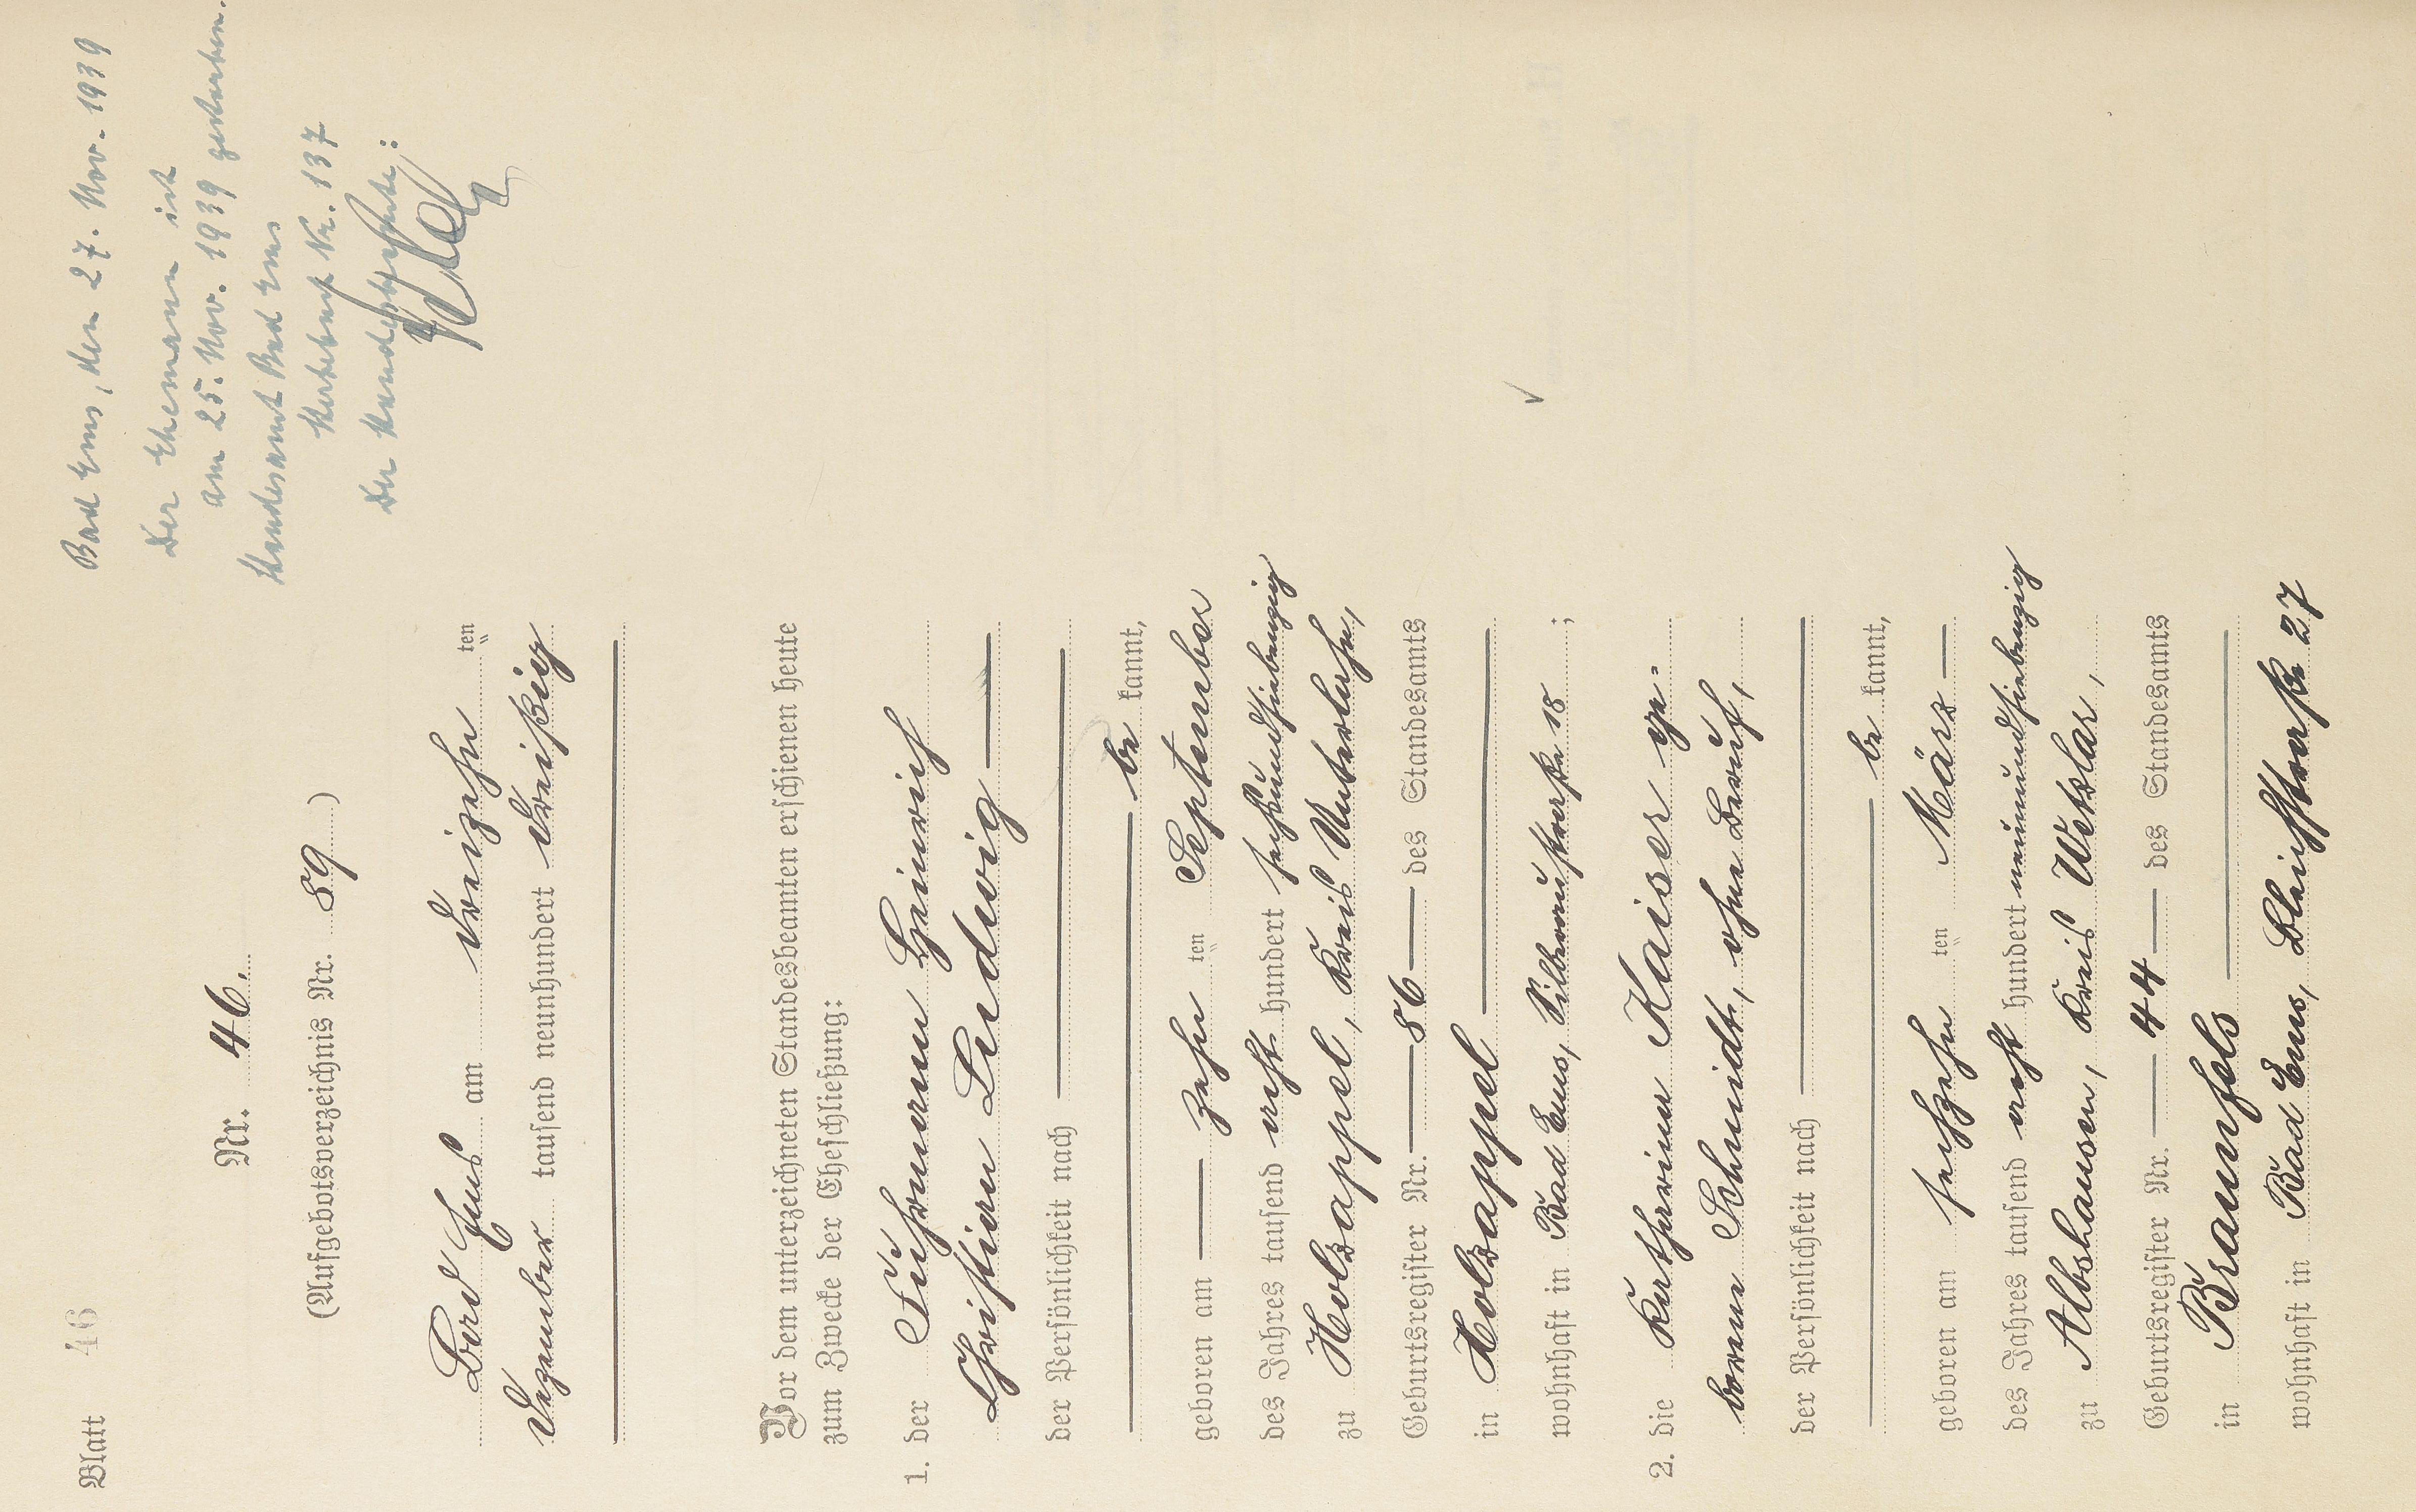 Blatt 46
Bad Ems, den 27. Nov. 1939
Der Ehemann ist
am 25. Nov. 1939 gestorben.
Standesamt Bad Ems
Sterbebuch Nr. 137
Der Standesbeamte:
Nr. 46.
(Aufgebotsverzeichnis Nr. 89)
Bad Ems am dreizehn ten
Dezember tausend neunhundert dreißig
Vor dem unterzeichneten Standesbeamten erschienen heute
zum Zwecke der Eheschließung:
1. der Fuhrmann Heinrich
Christian Ludwig
der Persönlichkeit nach
be kannt,
geboren am zehn ten September
des Jahres tausend acht hundert sechsundsiebenzig
zu Holzappel, Kreis Unterlahn,
Geburtsregister Nr. 86 des Standesamts
in Holzappel
wohnhaft in Bad Ems, Silberaustraße 18 ;
2. die Katharina Kaiser ge-
borene Schmidt, ohne Beruf,
der Persönlichkeit nach
be kannt,
geboren am sechzehn ten März
des Jahres tausend acht hundert neunundsiebenzig
zu Albshausen, Kreis Wetzlar,
Geburtsregister Nr. 44 des Standesamts
in Braunfels
wohnhaft in Bad Ems, Bleichstraße 27